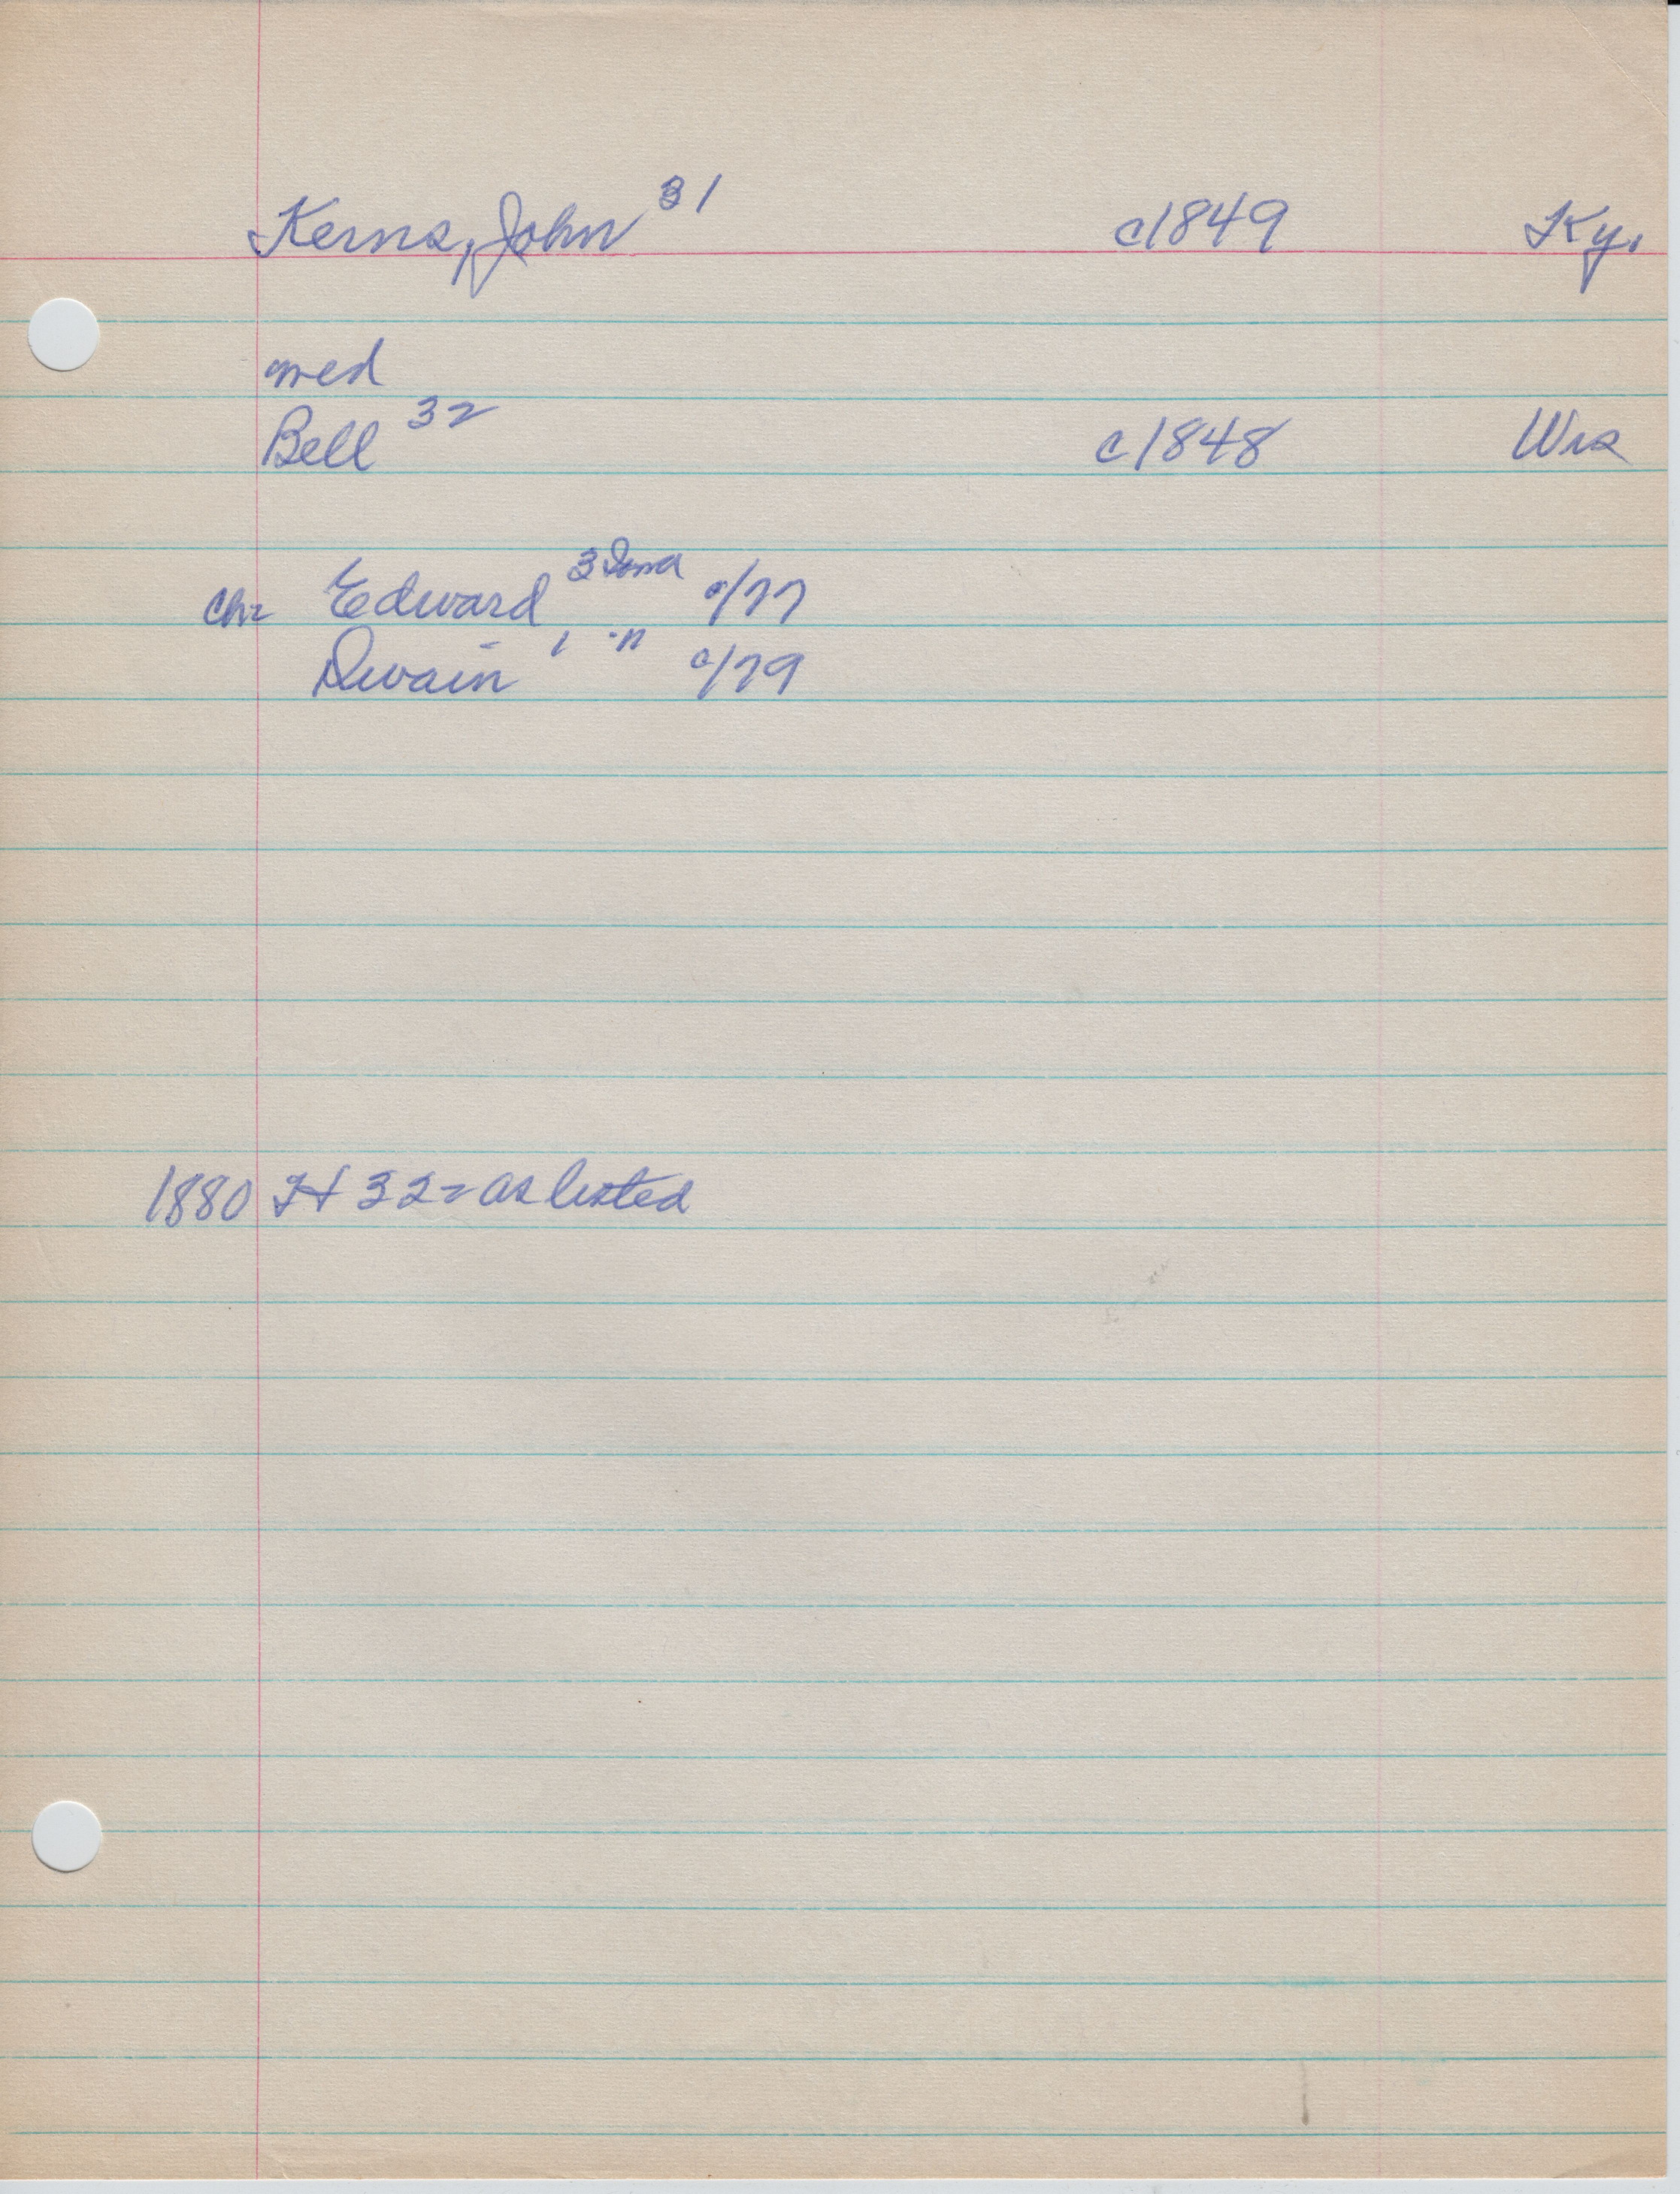 Kerns, John 31 c1849 Ky.
med
Bell 32 c1848 Wis
chr Edward 3 Iowa c/77
Dwain 1 " c/79
1880 H 322 as listed